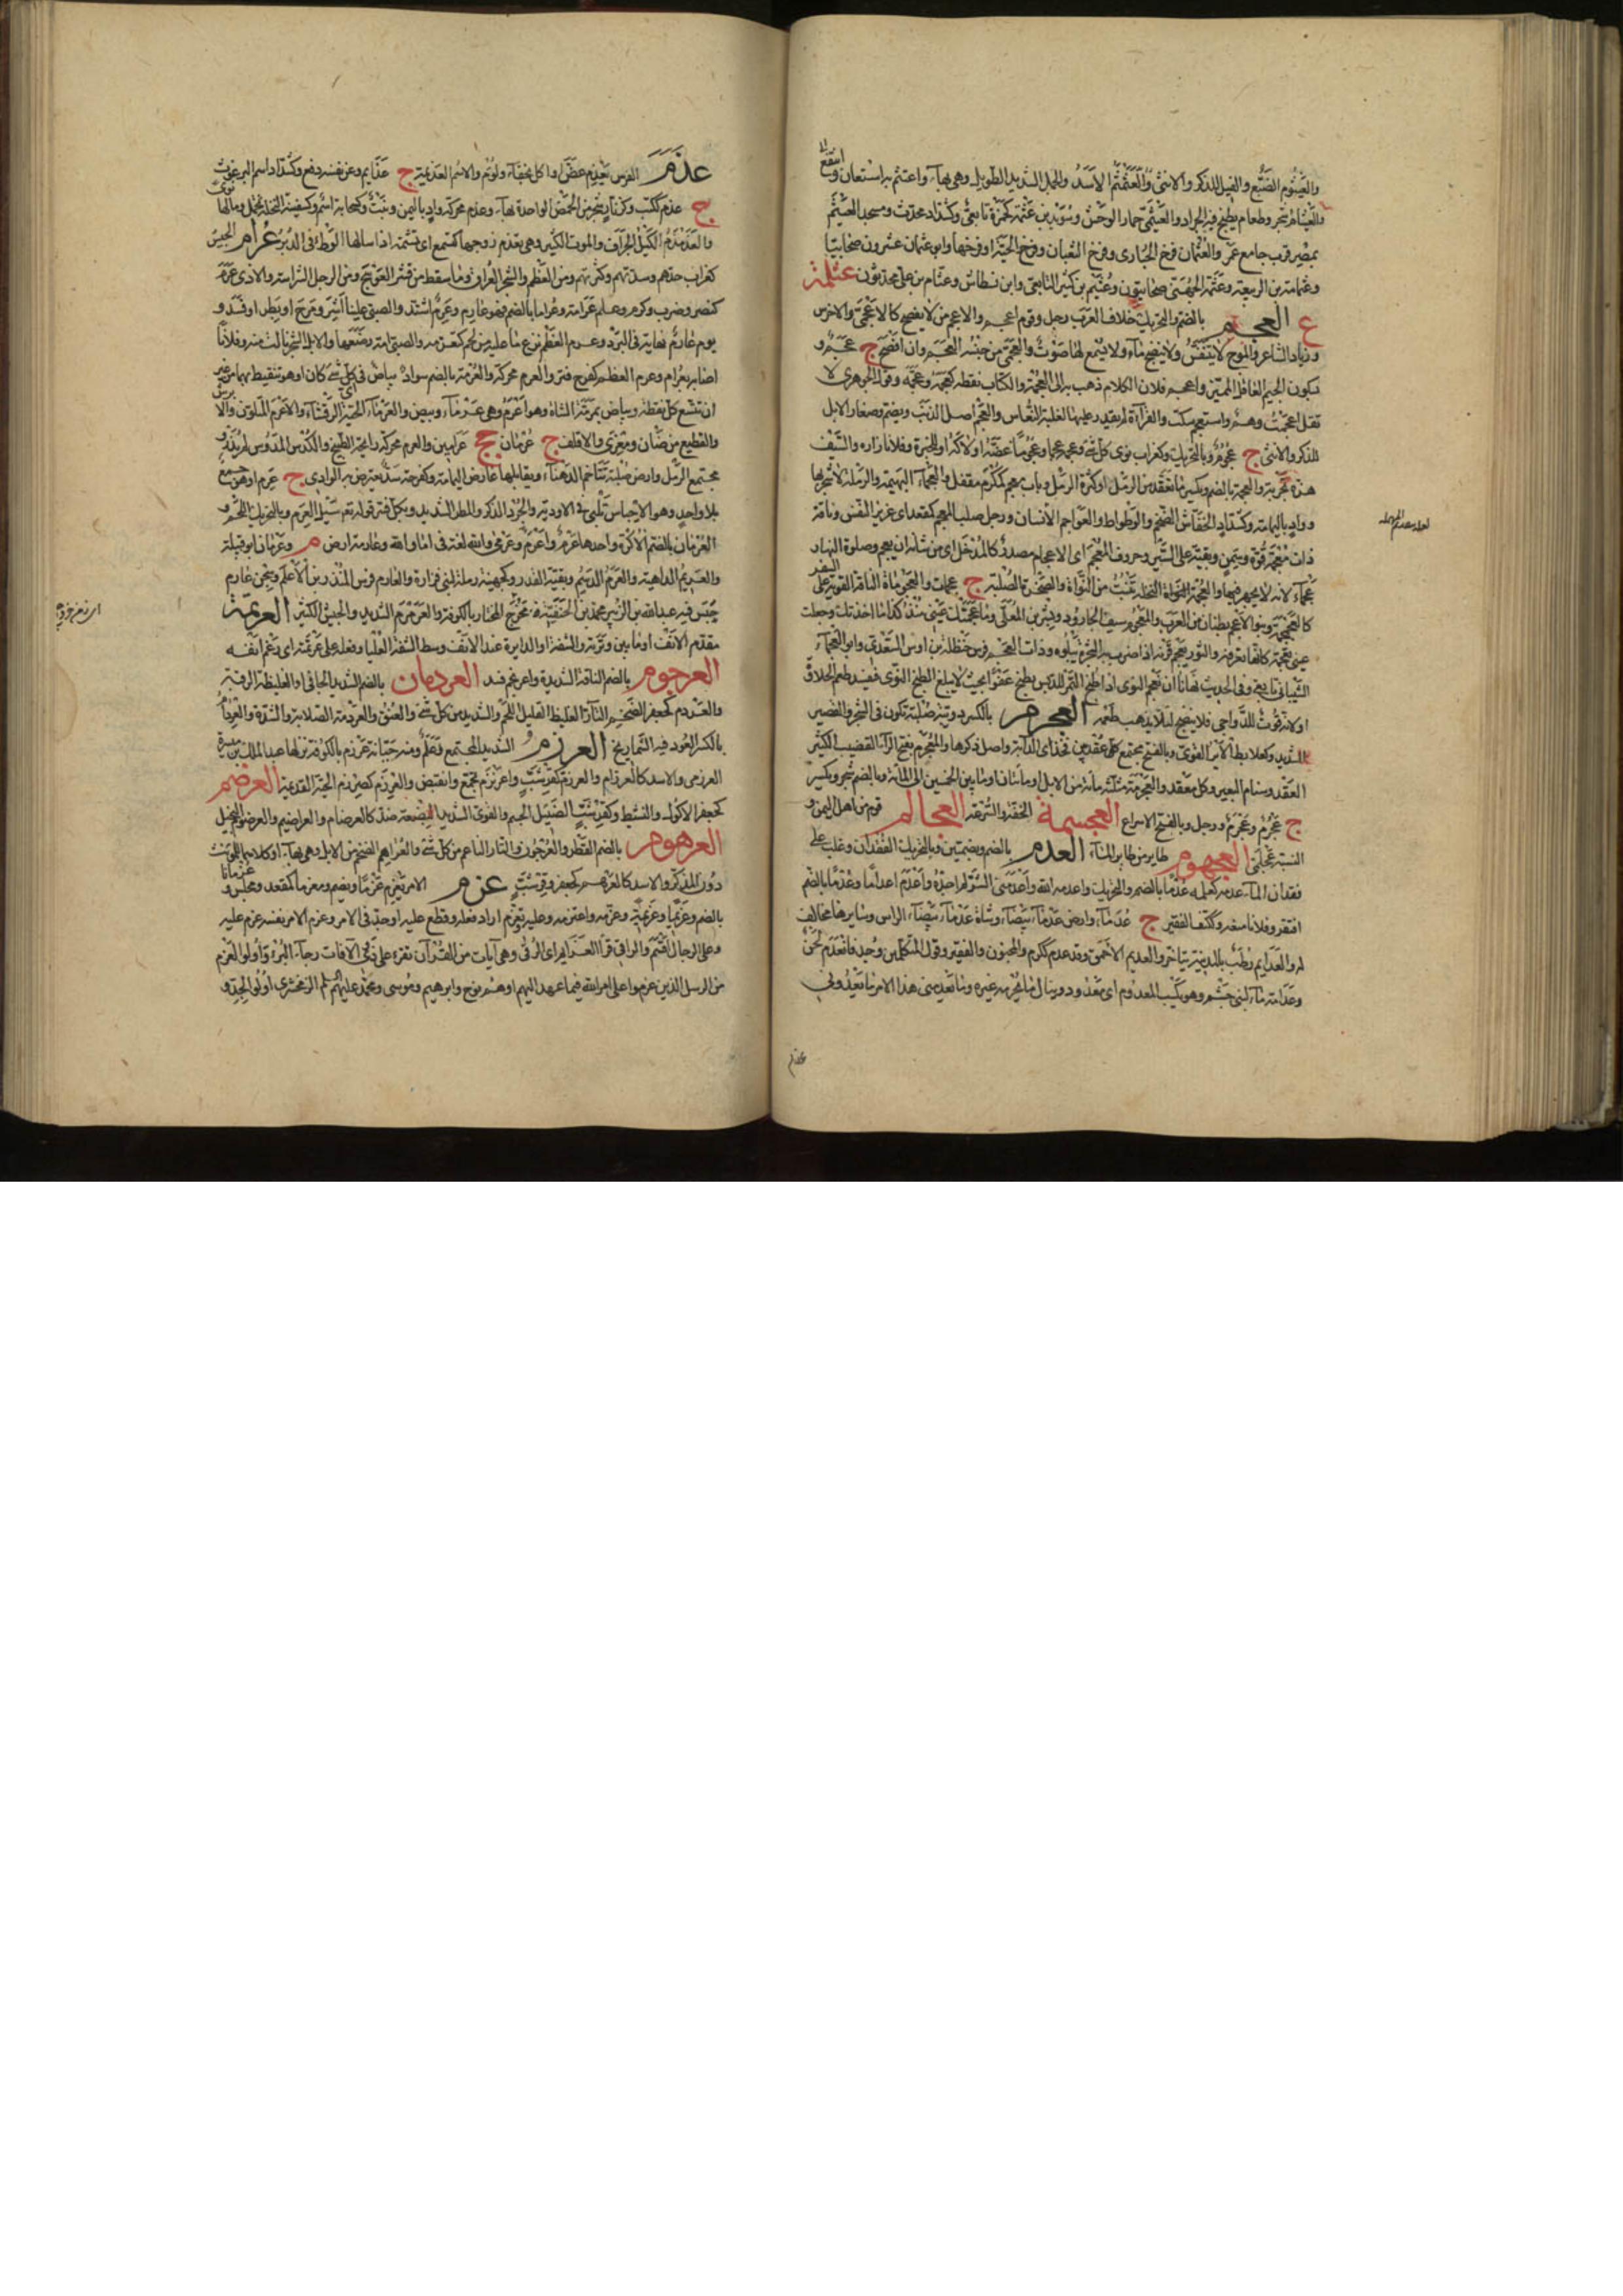 والعيثوم الضبع والفيل للذكر والانثى والعثمثم الاسد والجمل الشديد الطويل وهى بهاء واعتثم به استعان وانتفع
والعيثام شجر وطعام يطبخ فيه الجراد والعيثمى حمار الوحش وسويد بن عثمة كحمزة تابعى وكشداد محدث ومسجد العيثم
بمصر قرب جامع عمرو والعثمان فرخ الحبارى وفرخ الثعبان وفرخ الحية او فرخها وابو عثمان عشرون صحابيا
وعثامة بن الربيعة وعثمة الجهنى صحابيون وعثيم بن كثير التابعى وابن نسطاس وعثام بن على محدثون عثلمة
ع العجم بالضم والتحريك خلاف العرب رجل وقوم اعجم والاعجم من لا يفصح كالاعجمى والاخرس
وزياد الشاعر والموج لا يتنفس ولا ينضح ماء ولا يسمع لها صوت والعجمى من جنسه العجم وان افصح ج عجم و
بسكون الجيم العاقل المميز واعجم فلان الكلام ذهب به الى العجمة والكتاب نقطه كعجمه وعجمه وقول الجوهرى لا
تقل عجمت وهم واستعجم سكت والقراءة لم يقدر عليها لغلبة النعاس والعجم اصل الذنب ويضم وصغار الابل
للذكر والانثى ج عجوم وبالتحريك وكغراب نوى كل شئ وعجمه عجما وعجوما عضه او لاكه او للخبرة وفلانا رازه والسيف
هزه تجربة والعجمة بالضم وبكسر ما تعقد من الرمل او كثرة الرمل وباب معجم كمكرم مقفل والعجماء البهيمة والرملة لا شجر بها
وواد باليمامة وكشداد الخفاش الضخم والوطواط والعواجم الاسنان ورجل صلب المعجم كمقعد اى عزيز النفس وناقة
ذات معجمة قوة وسمن وبقية على السير وحروف المعجم اى الاعجام مصدر كالمدخل اى من شانه ان يعجم وصلوة النهار
عجماء لانه لا يجهر فيها والعجمة النخلة تنبت من النواة والصخرة الصلبة ج عجمات والعجومة الناقة القوية على السفر
كالعجمجمة وبنو الاعجم بطنان من العرب والمعجوم سيف الجارود وبشر بن المعلى وما عجمتك عينى منذ كذا ما اخذتك وجعلت
عينى تعجمه كانها تعرفه والثور يعجم قرنه اذا ضرب به الشجرة يبلوه وذات العجم فرس حنظلة بن اوس السعدى وابو العجماء
الشيبانى تابعى وفى الحديث نهانا ان نعجم النوى اذا طبخ التمر للدبس يطبخ عفوا بحيث لا يبلغ الطبخ النوى فيفسد طعم الحلاوة
او لانه قوت للدواجن فلا ينضج لئلا يذهب طعمه العجرم بالكسر دويبة صلبة تكون فى الشجر والقصير
الشديد وكعلابط الاير القوى وبالفتح مجتمع كل عقد بين فخذى الدابة واصل ذكرها والمعجرم بفتح الراء القضيب الكثير
العقد وسنام البعير وكل معقد والعجرمة مثلثة مائة من الابل او مائتان او ما بين الخمسين الى المائة وبالضم شجر ويكسر
ج عجرم وعجرم ورجل وبالفتح الاسراع العجسمة الخفة والسرعة العجالم قوم من اهل اليمن و
النسبة عجلمى العجهوم طاير من طاير الماء العدم بالضم وبضمتين وبالتحريك الفقدان وغلب على
فقدان المال عدمه كعلمه عدما بالضم والتحريك واعدمه الله واعدمنى الشئ لم اجده واعدم اعداما وعدما بالضم
افتقر وفلانا منعه وككتف الفقير ج عدماء وارض عدماء بيضاء وشاة عدماء بيضاء الراس وسايرها مخالف
له والعدايم رطب بالمدينة يتاخر والعديم الاحمق وقد عدم ككرم والمجنون والفقير وقول المتكلمين وجد فانعدم لحن
وعدامة ماء لبنى جشم وهو يكسب المعدوم اى مجدود وينال ما يحرمه غيره وما يعدمنى هذا الامر ما يعدونى
عذم
عذم الفرس يعذم عض او اكل بجفاء ولوم والاسم العذيمة ج عذايم وعن نفسه دفع وكشداد اسم البرغوث
ج عذم ككتب وكزنار شجر من الحمض الواحدة بهاء وعذم محركة واد باليمن ونبت وكسحابة اسم وكسفينة النخلة تحمل وما لها نوى
والعذمذم الكيل الجزاف والموت الكثير وهى تعذم زوجها كتسمع اى تشتمه اذا سالها الوطء فى الدبر عرام الجيش
كغراب حدهم وشدتهم وكثرتهم ومن العظم والشجر العراق وما سقط من قشر العوسج ومن الرجل الشراسة والاذى عرم
كنصر وضرب وكرم وعلم عرامة وعراما بالضم فهو عارم وعرم اشتد والصبى علينا اشر ومرح او بطر او فسد و
يوم عارم نهاية فى البرد وعرم العظم نزع ما عليه من لحم كتعرمه والصبى امه رضعها والابل الشجر نالت منه وفلانا
اصابه بعرام وعرم العظم كفرح قتر والعرم محركة والعرمة بالضم سواد ببياض فى كل شئ كان او هو تنقيط بهما من غير
ان تتسع كل نقطة وبياض بمرمة الشاة وهو اعرم وهى عرماء وبيض والعرماء الحية الرقشاء والاعرم المتلون والابرش
والقطيع من ضان ومعزى والاقلف ج عرمان جج عرامين والعرم محركة رايحة الطبيخ والكدس المدوس لم يذر و
مجتمع الرمل وارض صلبة تتاخم الدهناء ويقابلها عارض اليمامة وكفرحة سد يعترض به الوادى ج عرم او هو جمع
بلا واحد وهو الاحباس تبنى فى الاودية والجرذ الذكر والمطر الشديد وبكل فسر قوله تعالى سيل العرم وبالتحريك اللحم و
العرمان بالضم الاكرة واحدها عرم واعرم وعرمى والله لغة فى اما والله وعارمة ارض م وعرمان ابو قبيلة
والعريم الداهية والعرم الدسم وبقية القدر وكجهينة رملة لبنى فزارة والعارم فرس المنذر بن الاعلم وسجن عارم
حبس فيه عبدالله بن الزبير محمد بن الحنفية فخرج المختار بالكوفة والعرمرم الشديد والجيش الكثير العرتمة
مقدم الانف او ما بين وترته والشفة او الدايرة عند الانف وسط الشفة العليا وفعله على عرتمته اى رغم انفه
العرجوم بالضم الناقة الشديدة واعرنجم فسد العردمان بالضم الشديد الجافى او الغليظ الرقبة
والعردم كجعفر الضخم التار الغليظ القليل اللحم والشديد من كل شئ والعنق والعردمة الصلابة والشدة والعردام
بالكسر العود فيه الشماريخ العرزم الشديد المجتمع وعلم ومنه جبانة عرزم بالكوفة نزلها عبد الملك بن ميسرة
العرزمى والاسد كالعرزام والعرزم كقرشب واعرنزم تجمع وانقبض والعرزم كضرزم الحية القديمة العرضم
كجعفر الاكول والنشيط وكقرشب الضئيل الجسم والقوى الشديد البضعة ضد كالعرضام والعراضيم والعرضوم البخيل
العرهوم بالضم الفطر والعرجون والتار الناعم من كل شئ والعراهم الضخم من الابل وهى بهاء او كلاهما للمؤنث
دون المذكر والاسد كالعرهم كجعفر وقرشب عزم الامر يعزم عزما ويضم ومعزما كمقعد ومجلس وعزمانا
بالضم وعزيما وعزيمة وعزمه واعتزمه وعليه تعزم اراد فعله وقطع عليه او جد فى الامر وعزم الامر نفسه عزم عليه
وعلى الرجل اقسم والراقى قرا العزايم اى الرقى وهى آيات من القرآن تقرء على ذوى الآفات رجاء البرء واولوا العزم
من الرسل الذين عزموا على امر الله فيما عهد اليهم او هم نوح وابرهيم وموسى ومحمد عليهم السلم الزمخشرى اولوا الجد و